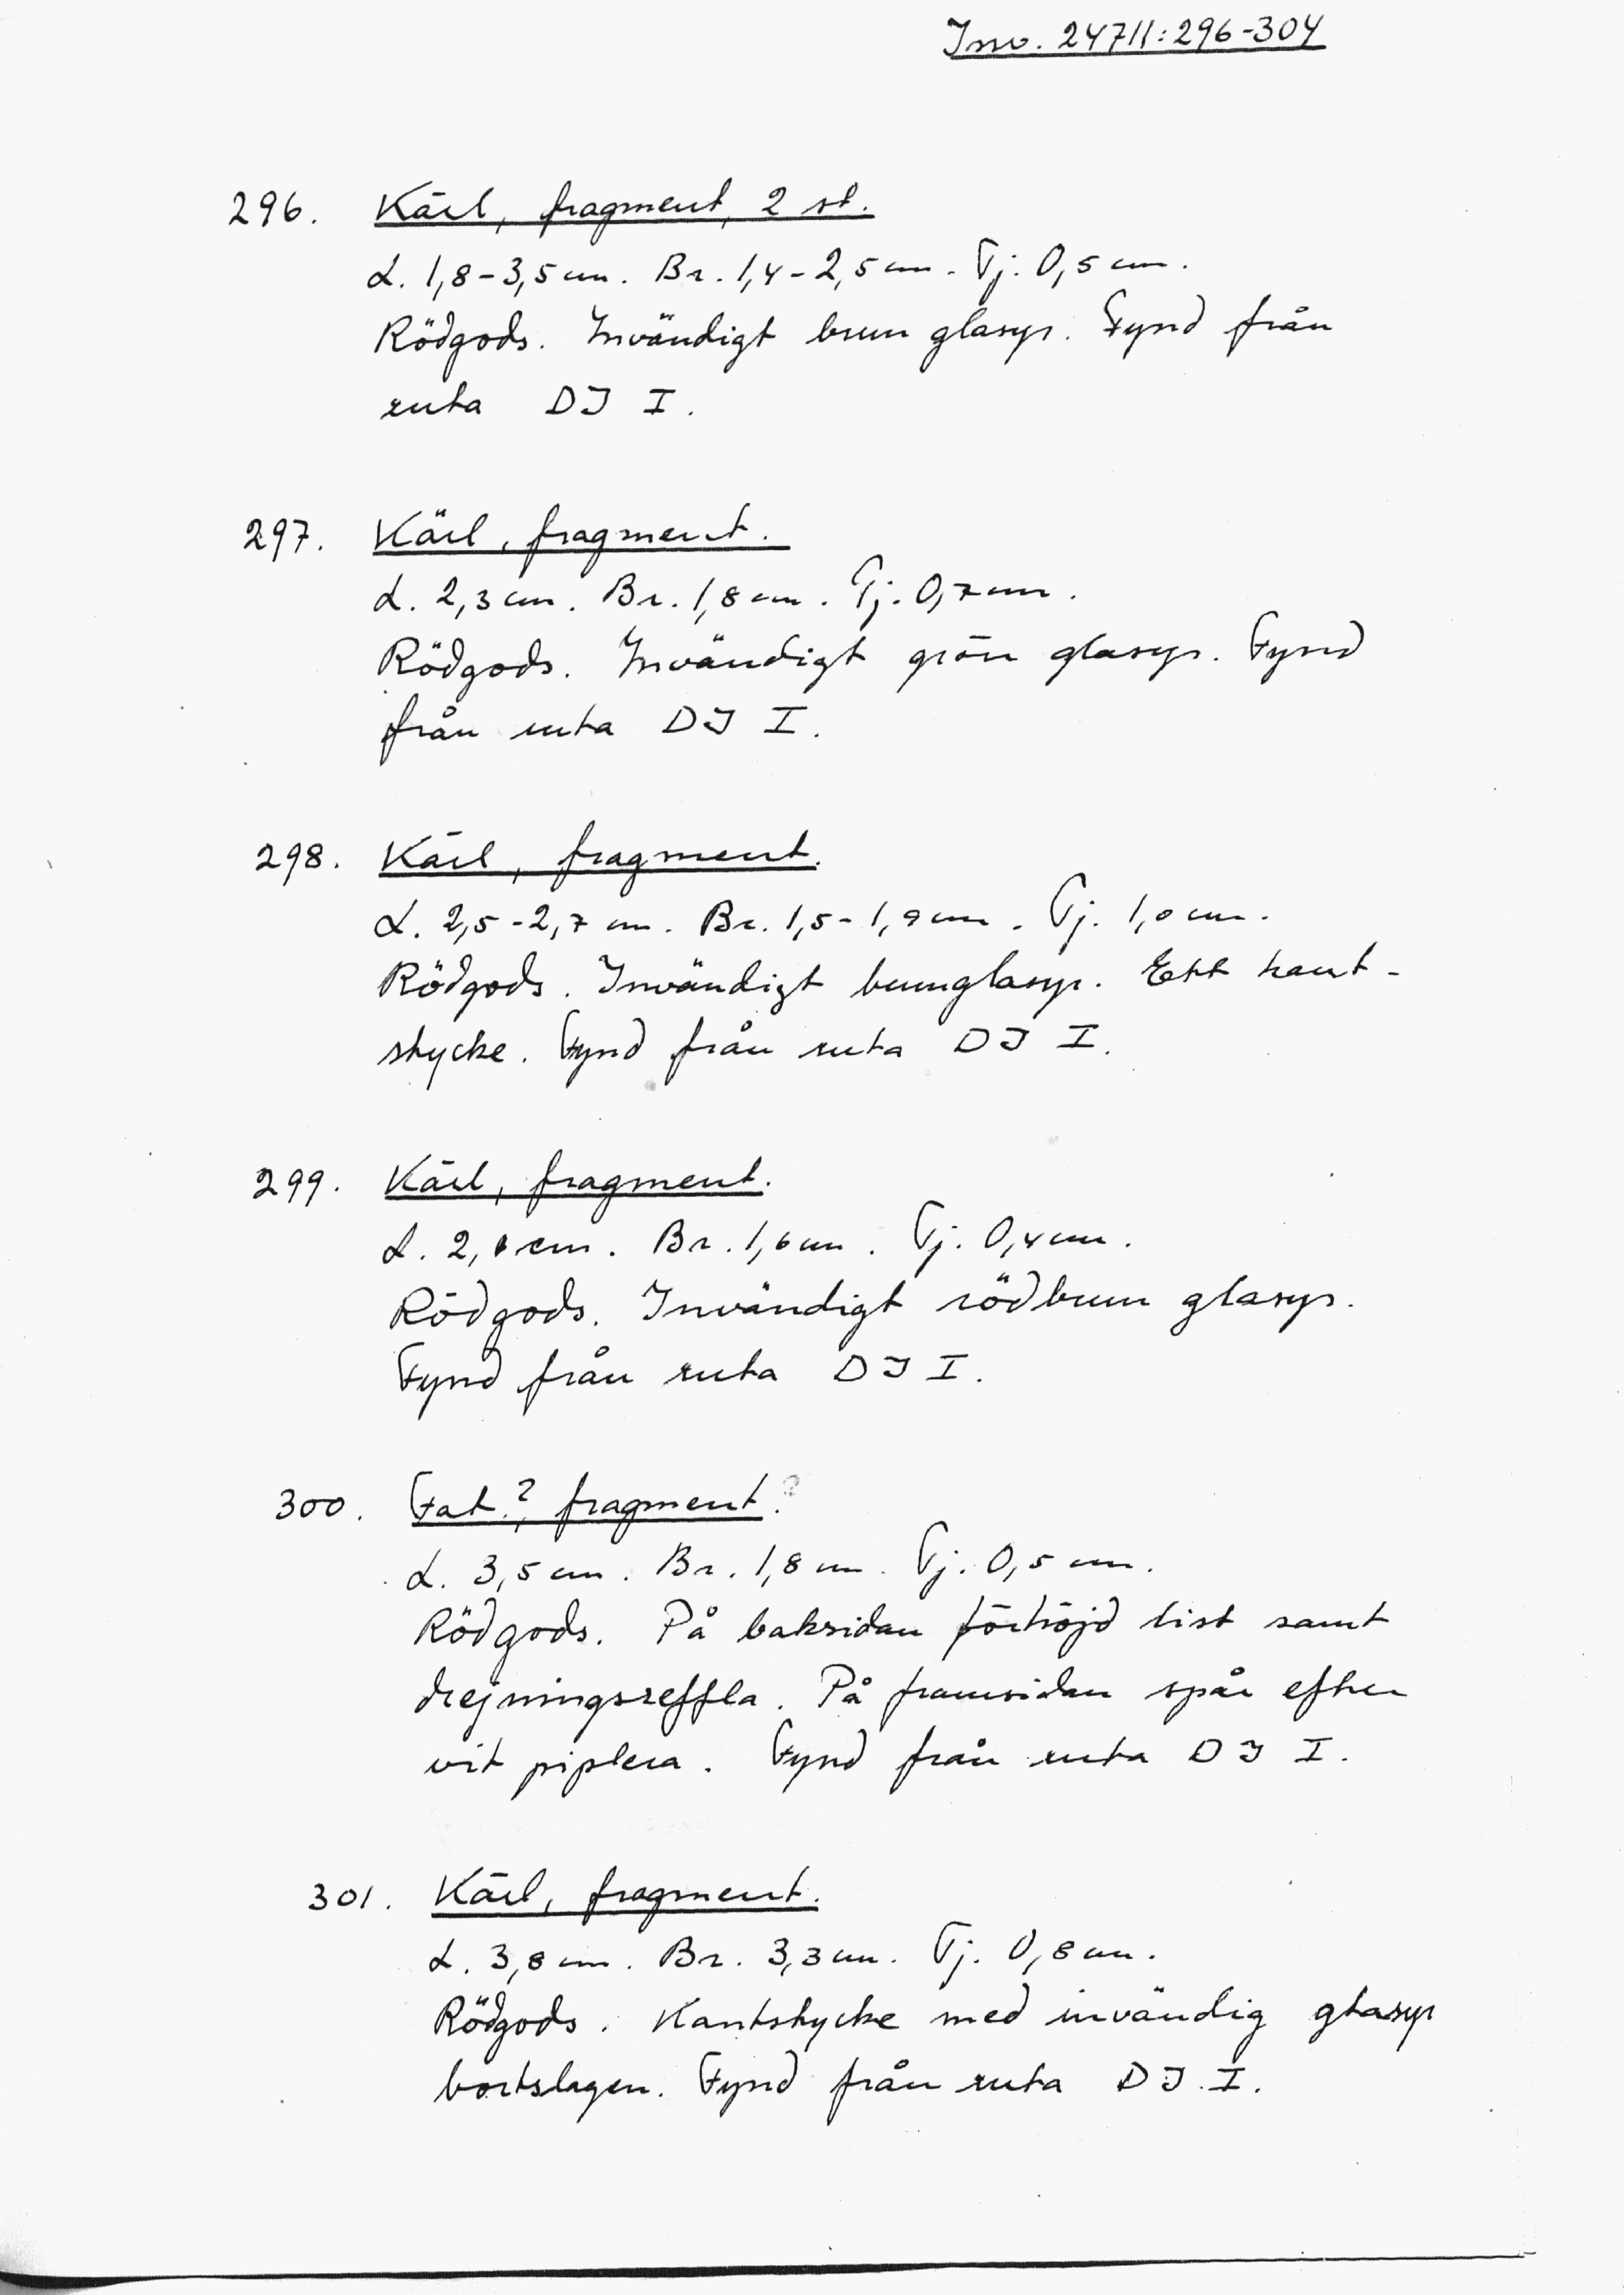 Inv. 24711:296-304
296. Kärl, fragment, 2 st.
L. 1,8-3,5 cm. Br. 1,4-2,5 cm. Tj. 0,5 cm.
Rödgods. Invändigt brun glasyr. Fynd från
ruta DJ I.
297. Kärl, fragment.
L. 2,3 cm. Br. 1,8 cm. Tj. 0,7 cm.
Rödgods. Invändigt grön glasyr. Fynd
från ruta DJ I.
298. Kärl, fragment.
L. 2,5-2,7 cm. Br. 1,5-1,9 cm. Tj. 1,0 cm.
Rödgods. Invändigt brunglasyr. Ett kant-
stycke. Fynd från ruta DJ I.
299. Kärl, fragment.
L. 2, cm. Br. 1,6 cm. Tj. 0,4 cm.
Rödgods. Invändigt rödbrun glasyr.
Fynd från ruta DJ I.
300. Fat?, fragment.?
L. 3,5 cm. Br. 1,8 cm. Tj. 0,5 cm.
Rödgods. På baksidan förhöjd list samt
drejningsreffla. På framsidan spår efter
vit piplera. Fynd från ruta DJ I.
301. Kärl, fragment.
L. 3,8 cm. Br. 3,3 cm. Tj. 0,8 cm.
Rödgods. Kantstycke med invändig glasyr
bortslagen. Fynd från ruta DJ I.